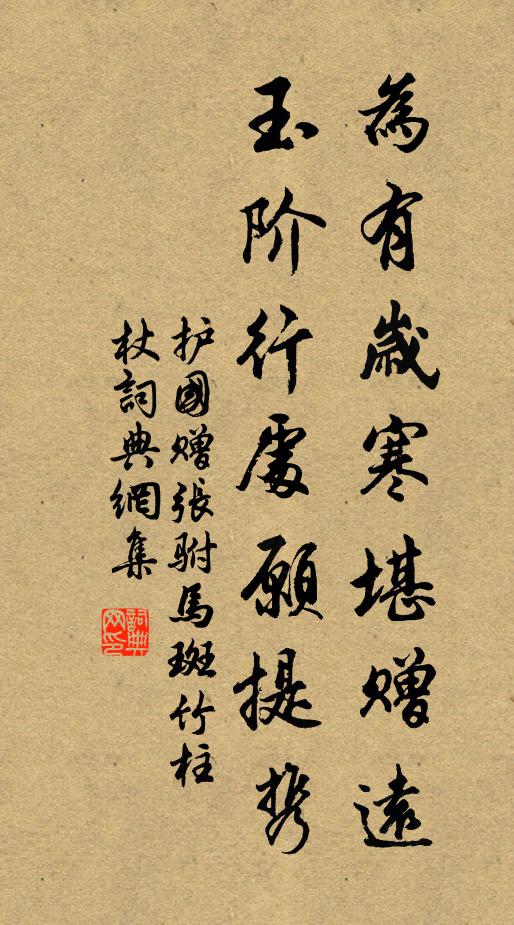 為有歲寒堪赠遠
玉阶行處願提携
护國赠張駙馬斑竹柱
杖詞典網集
詞典
网印